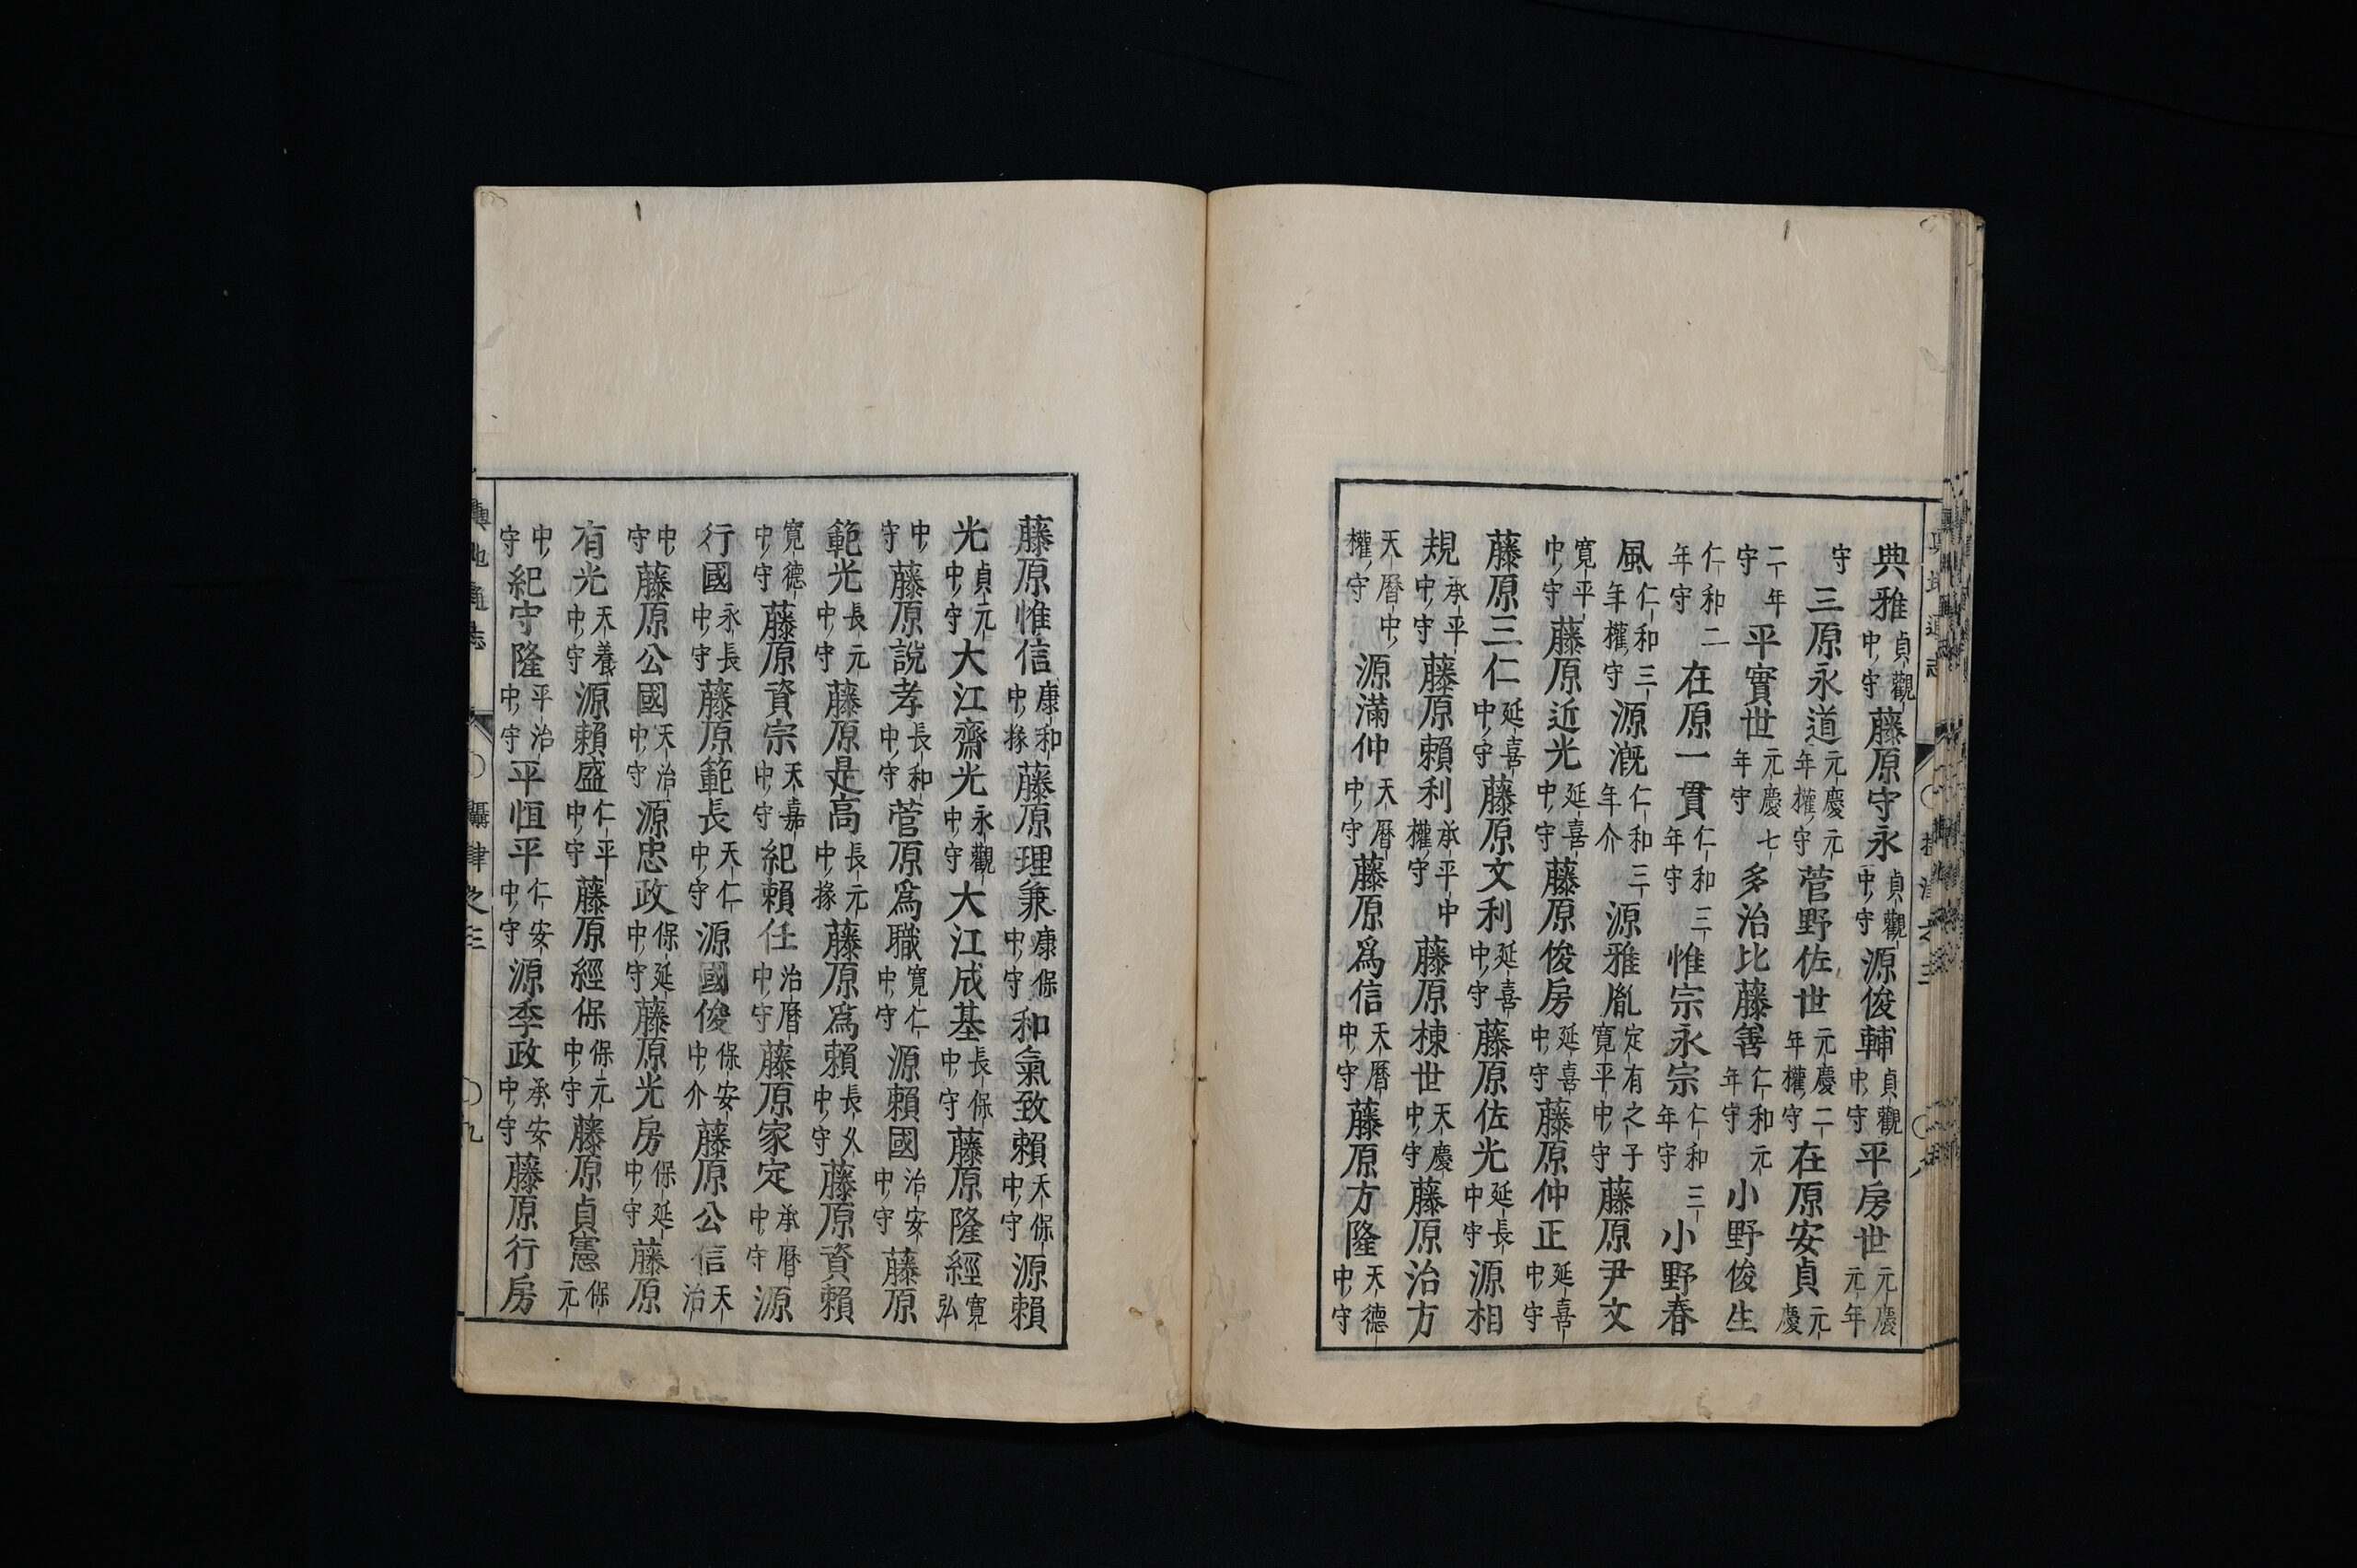 典雅貞觀中守藤原守永貞觀中守源俊輔貞觀中守平房世元慶元年
守三原永道元慶元年權守菅野佐世元慶二年權守在原安貞元慶
二年守平實世元慶七年守多治比藤善仁和元年守小野俊生
仁和二年守在原一貫仁和三年守惟宗永宗仁和三年守小野春
風仁和三年權守源漑仁和三年介源雅胤定有之子寛平中守藤原尹文
寛平中守藤原近光延喜中守藤原俊房延喜中守藤原仲正延喜中守
藤原三仁延喜中守藤原文利延喜中守藤原佐光延長中守源相
規承平中守藤原賴利承平中權守藤原棟世天慶中守藤原治方
天曆中權守源滿仲天曆中守藤原爲信天曆中守藤原方隆天德中守
藤原惟信康和中掾藤原理兼康保中守和氣致賴天保中守源賴
光貞元中守大江齋光永觀中守大江成基長保中守藤原隆經寛弘
中守藤原說孝長和中守菅原爲職寛仁中守源賴國治安中守藤原
範光長元中守藤原是高長元中掾藤原爲賴長久中守藤原資賴
寛德中守藤原資宗天喜中守紀賴任治曆中守藤原家定承曆中守源
行國永長中守藤原範長天仁中守源國俊保安中介藤原公信天治
中守藤原公國天治中守源忠政保延中守藤原光房保延中守藤原
有光天養中守源賴盛仁平中守藤原經保保元中守藤原貞憲保元
中守紀守隆平治中守平恒平仁安中守源季政承安中守藤原行房
輿地通志
攝津之三
九